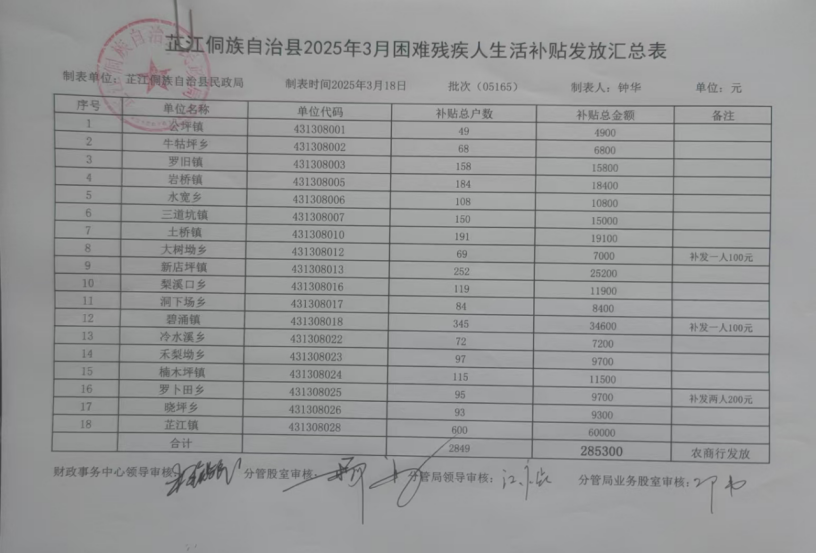 芷江侗族自治县2025年3月困难残疾人生活补贴发放汇总表
制表单位：芷江侗族自治县民政局 制表时间2025年3月18日 批次（05165） 制表人：钟华 单位：元
序号 单位名称 单位代码 补贴总户数 补贴总金额 备注
1 公坪镇 431308001 49 4900
2 牛牯坪乡 431308002 68 6800
3 罗旧镇 431308003 158 15800
4 岩桥镇 431308005 184 18400
5 水宽乡 431308006 108 10800
6 三道坑镇 431308007 150 15000
7 土桥镇 431308010 191 19100
8 大树坳乡 431308012 69 7000 补发一人100元
9 新店坪镇 431308013 252 25200
10 梨溪口乡 431308016 119 11900
11 洞下场乡 431308017 84 8400
12 碧涌镇 431308018 345 34600 补发一人100元
13 冷水溪乡 431308022 72 7200
14 禾梨坳乡 431308023 97 9700
15 楠木坪镇 431308024 115 11500
16 罗卜田乡 431308025 95 9700 补发两人200元
17 晓坪乡 431308026 93 9300
18 芷江镇 431308028 600 60000
合计 2849 285300 农商行发放
财政事务中心领导审核： 分管股室审核： 分管局领导审核： 分管局业务股室审核：